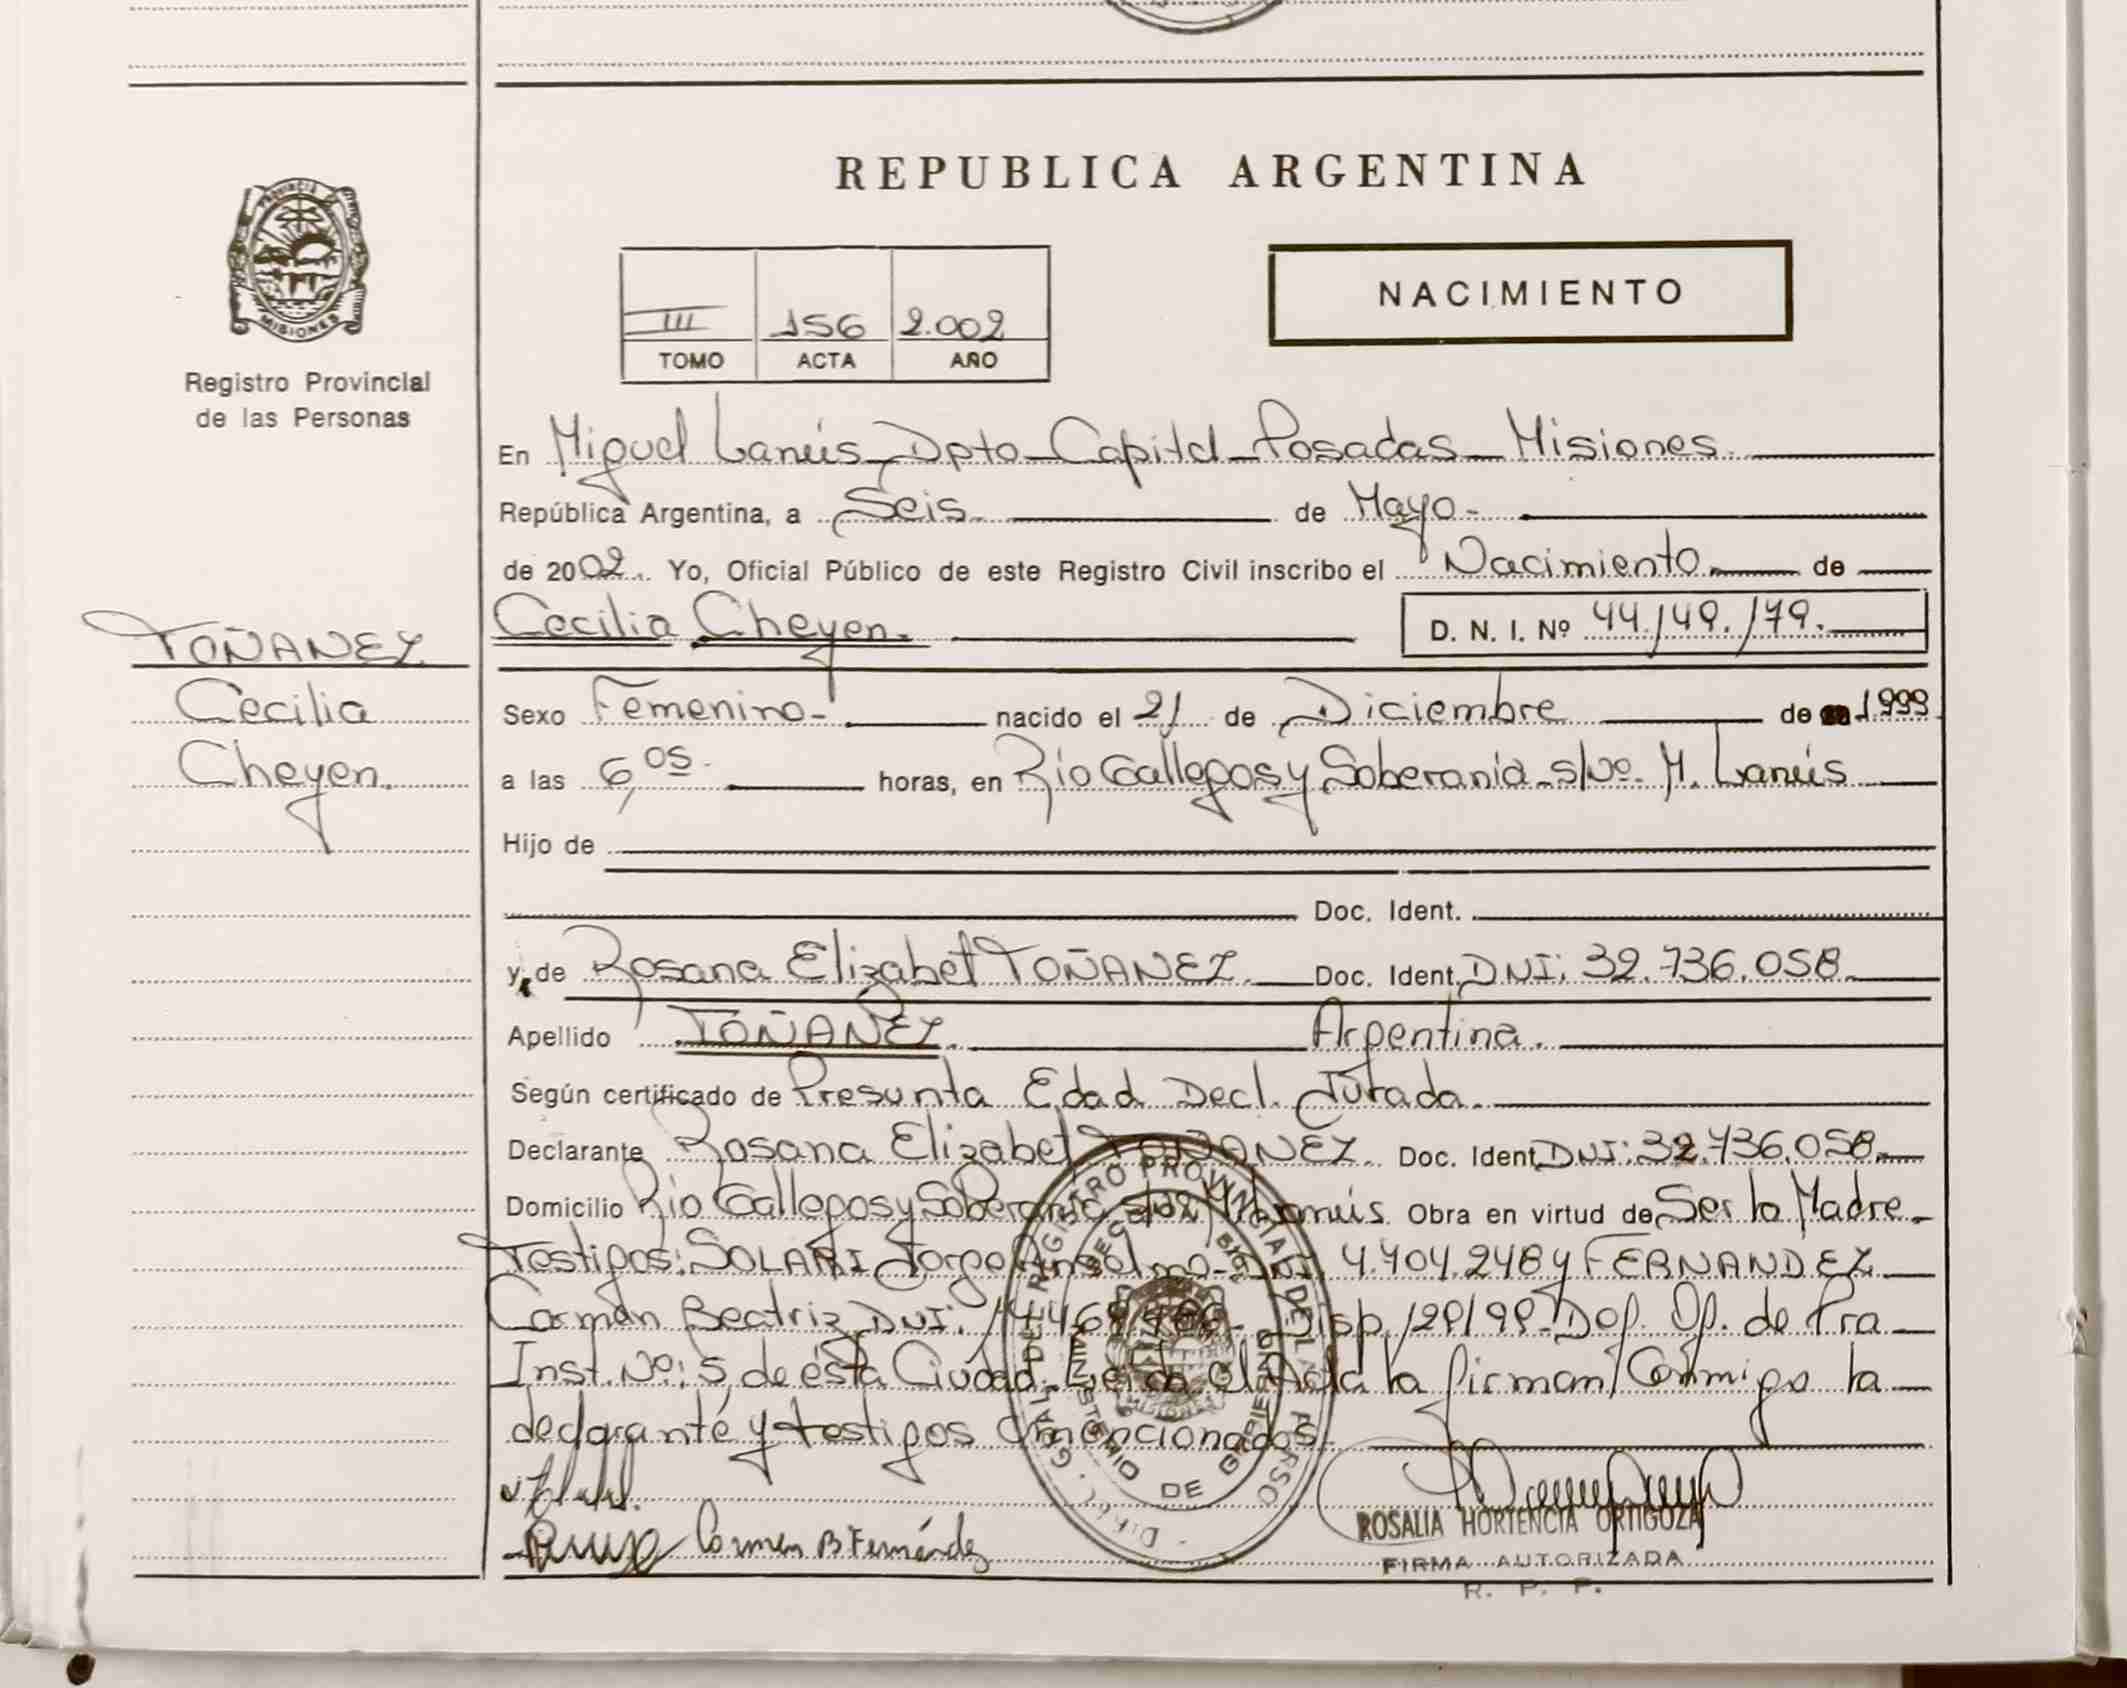 REPUBLICA ARGENTINA
PROVINCIA
MISIONES
Registro Provincial
de las Personas
III 156 2.002
TOMO ACTA AÑO
NACIMIENTO
En Miguel Lanús_Dpto_Capital_Posadas_Misiones.
República Argentina, a Seis. de Mayo-
de 2002. Yo, Oficial Público de este Registro Civil inscribo el Nacimiento de
Cecilia Cheyen. D. N. I. Nº 44.149.179.
TOÑANEZ
Cecilia
Cheyen.
Sexo Femenino- nacido el 21 de Diciembre de 1999
a las 6,05. horas, en Rio Gallegos y Soberania_s/Nº. M. Lanús
Hijo de
Doc. Ident.
y de Rosana Elizabet TOÑANEZ. Doc. Ident. DNI: 32.736.058.
Apellido TOÑANEZ. Argentina.
Según certificado de Presunta Edad Decl. Jurada.
Declarante Rosana Elizabet TOÑANEZ. Doc. Ident. DNI: 32.736.058.
Domicilio Rio Gallegos y Soberania s/Nº M. Lanús. Obra en virtud de Ser la Madre_
Testigos: SOLARI Jorge Anselmo_DNI. 4.404.248 y FERNANDEZ
Carmen Beatriz DNI: Disp. 129/99_Def. Of. de Pra
Inst. Nº: 5 de ésta Ciudad. Leida el Acta la firman Conmigo la
declarante y testigos mencionados
Carmen B Fernández
ROSALIA HORTENCIA ORTIGOZA
FIRMA AUTORIZADA
R. P. P.